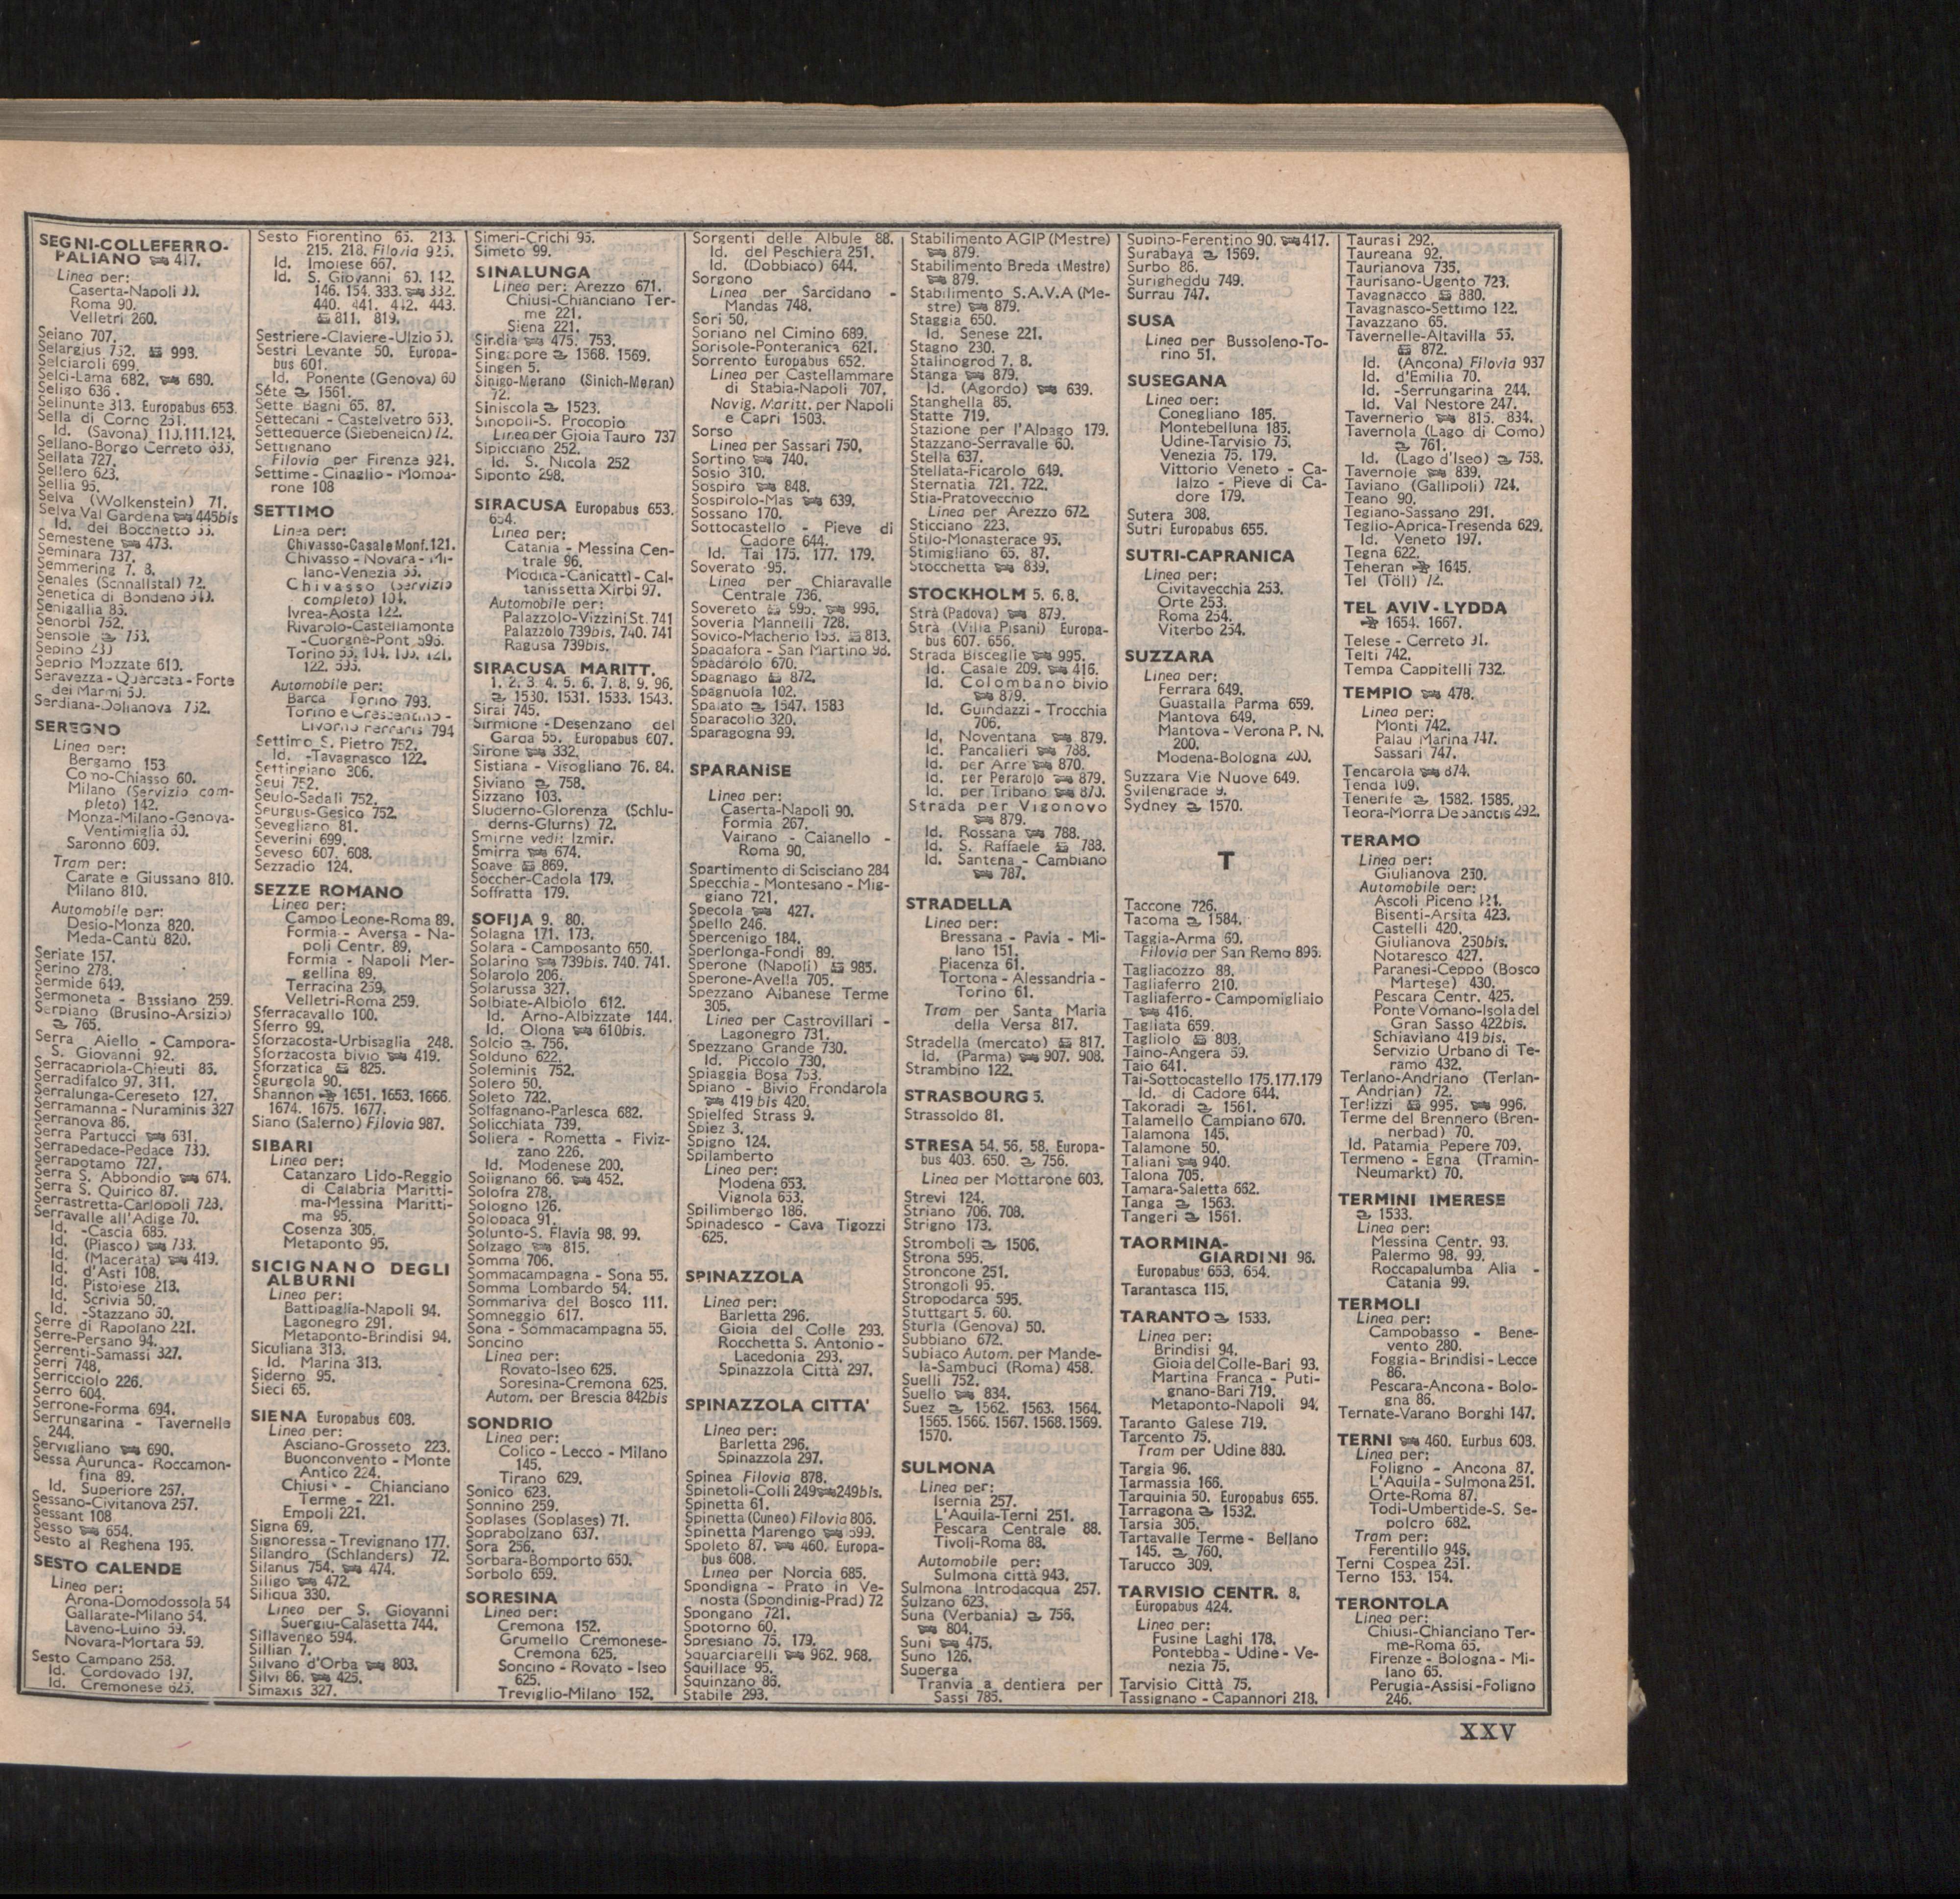 SEGNI-COLLEFERRO-
PALIANO 417.
Linea per:
Caserta-Napoli
Roma 90.
Velletri 260.
Seiano 707.
Selargius 752. 993.
Selciaroli 699.
Selci-Lama 682, 680.
Seligo 636.
Selinunte 313. Europabus 653.
Sella di Corno 251.
Id. (Savona) 110.111.124.
Sellano-Borgo Cerreto 685.
Sellata 727.
Sellero 623.
Sellia 95.
Selva (Wolkenstein) 71.
Selva Val Gardena 445bis
Id. del Bocchetto
Semestene 473.
Seminara 737.
Semmering 7. 8.
Senales (Schnallstal) 72.
Senetica di Bondeno
Senigallia 86.
Senorbì 752.
Sensole 753.
Sepino
Seprio Mozzate 610.
Seravezza-Querceta-Forte
dei Marmi 50.
Serdiana-Dolianova 752.
SEREGNO
Linea per:
Bergamo 153
Como-Chiasso 60.
Milano (Servizio com-
pleto) 142.
Monza-Milano-Genova-
Ventimiglia 60.
Saronno 609.
Tram per:
Carate e Giussano 810.
Milano 810.
Automobile per:
Desio-Monza 820.
Meda-Cantù 820.
Seriate 157.
Serino 278.
Sermide 649.
Sermoneta - Bassiano 259.
Serpiano (Brusino-Arsizio)
765.
Serra Aiello - Campora-
S. Giovanni 92.
Serracapriola-Chieuti 86.
Serradifalco 97. 311.
Serralunga-Cereseto 127.
Serramanna - Nuraminis 327
Serranova 86.
Serra Partucci 631.
Serrapedace-Pedace 730.
Serrapotamo 727.
Serra S. Abbondio 674.
Serra S. Quirico 87.
Serrastretta-Carlopoli 723.
Serravalle all'Adige 70.
Id. -Cascia 685.
Id. (Piasco) 733.
Id. (Macerata) 419.
Id. d'Asti 108.
Id. Pistoiese 213.
Id. Scrivia 50.
Id. -Stazzano 50.
Serre di Rapolano 221.
Serre-Persano 94.
Serrenti-Samassi 327.
Serri 748.
Serricciolo 226.
Serro 604.
Serrone-Forma 694.
Serrungarina - Tavernelle
244.
Servigliano 690.
Sessa Aurunca- Roccamon-
fina 89.
Id. Superiore 267.
Sessano-Civitanova 257.
Sessant 108
Sesso 654.
Sesto al Reghena 195.
SESTO CALENDE
Linea per:
Arona-Domodossola 54
Gallarate-Milano 54.
Laveno-Luino 59.
Novara-Mortara 59.
Sesto Campano 258.
Id. Cordovado 197.
Id. Cremonese 625.
Sesto Fiorentino 65. 213.
215. 218. Filovia 925.
Id. Imolese 667.
Id. S. Giovanni 60. 142.
146. 154. 333. 332.
440. 441. 442. 443.
811. 819.
Sestriere-Claviere-Ulzio 50.
Sestri Levante 50. Europa-
bus 601.
Id. Ponente (Genova) 60
Séte 1561.
Sette Bagni 65. 87.
Settecani - Castelvetro 653.
Settequerce (Siebeneich) 72.
Settignano
Filovia per Firenze 924.
Settime - Cinaglio - Momba-
rone 108
SETTIMO
Linea per:
Chivasso-Casale Monf.121.
Chivasso - Novara - Mi-
lano-Venezia 55.
Chivasso (Servizio
completo) 104.
Ivrea-Aosta 122.
Rivarolo-Castellamonte
-Cuorgnè-Pont 595.
Torino 55, 104. 105. 121.
122. 595.
Automobile per:
Barca Torino 793.
Torino e Crescentino -
Livorno Ferraris 794
Settimo S. Pietro 752.
Id. -Tavagnasco 122.
Settingiano 306.
Seui 752.
Seulo-Sadali 752.
Seurgus-Gesico 752.
Sevegliano 81.
Severini 699.
Seveso 607. 608.
Sezzadio 124.
SEZZE ROMANO
Linea per:
Campo Leone-Roma 89.
Formia - Aversa - Na-
poli Centr. 89.
Formia - Napoli Mer-
gellina 89.
Terracina 259.
Velletri-Roma 259.
Sferracavallo 100.
Sferro 99.
Sforzacosta-Urbisaglia 248.
Sforzacosta bivio 419.
Sforzatica 825.
Sgurgola 90.
Shannon 1651. 1653. 1666.
1674. 1675. 1677.
Siano (Salerno) Filovia 987.
SIBARI
Linea per:
Catanzaro Lido-Reggio
di Calabria Maritti-
ma-Messina Maritti-
ma 95.
Cosenza 305.
Metaponto 95.
SICIGNANO DEGLI
ALBURNI
Linea per:
Battipaglia-Napoli 94.
Lagonegro 291.
Metaponto-Brindisi 94.
Siculiana 313.
Id. Marina 313.
Siderno 95.
Sieci 65.
SIENA Europabus 608.
Linea per:
Asciano-Grosseto 223.
Buonconvento - Monte
Antico 224.
Chiusi - Chianciano
Terme - 221.
Empoli 221.
Signa 69.
Signoressa-Trevignano 177.
Silandro (Schlanders) 72.
Silanus 754. 474.
Siligo 472.
Siliqua 330.
Linea per S. Giovanni
Suergiu-Calasetta 744.
Sillavengo 594.
Sillian 7.
Silvano d'Orba 803.
Silvi 86. 425.
Simaxis 327.
Simeri-Crichi 95.
Simeto 99.
SINALUNGA
Linea per: Arezzo 671.
Chiusi-Chianciano Ter-
me 221.
Siena 221.
Sindia 475. 753.
Singapore 1568. 1569.
Singen 5.
Sinigo-Merano (Sinich-Meran)
72.
Siniscola 1523.
Sinopoli-S. Procopio
Linea per Gioia Tauro 737
Sipicciano 252.
Id. S. Nicola 252
Siponto 298.
SIRACUSA Europabus 653.
654.
Linea per:
Catania - Messina Cen-
trale 96.
Modica-Canicattì - Cal-
tanissetta Xirbi 97.
Automobile per:
Palazzolo-Vizzini St. 741
Palazzolo 739bis. 740. 741
Ragusa 739bis.
SIRACUSA MARITT.
1. 2. 3. 4. 5. 6. 7. 8. 9. 96.
1530. 1531. 1533. 1543.
Sirai 745.
Sirmione - Desenzano del
Garda 55. Europabus 607.
Sirone 332.
Sistiana - Visogliano 76. 84.
Siviano 758.
Sizzano 103.
Sluderno-Glorenza (Schlu-
derns-Glurns) 72.
Smirne vedi: Izmir.
Smirra 674.
Soave 869.
Soccher-Cadola 179.
Soffratta 179.
SOFIJA 9. 80.
Solagna 171. 173.
Solara - Camposanto 650.
Solarino 739bis. 740. 741.
Solarolo 206.
Solarussa 327.
Solbiate-Albiolo 612.
Id. Arno-Albizzate 144.
Id. Olona 610bis.
Solcio 756.
Solduno 622.
Soleminis 752.
Solero 50.
Soleto 722.
Solfagnano-Parlesca 682.
Solicchiata 739.
Soliera - Rometta - Fiviz-
zano 226.
Id. Modenese 200.
Solignano 66. 452.
Solofra 278.
Sologno 126.
Solopaca 91.
Solunto-S. Flavia 98. 99.
Solzago 815.
Somma 706.
Sommacampagna - Sona 55.
Somma Lombardo 54.
Sommariva del Bosco 111.
Somneggio 617.
Sona - Sommacampagna 55.
Soncino
Linea per:
Rovato-Iseo 625.
Soresina-Cremona 625.
Autom. per Brescia 842bis
SONDRIO
Linea per:
Colico - Lecco - Milano
145.
Tirano 629.
Sonico 623.
Sonnino 259.
Soplases (Soplases) 71.
Soprabolzano 637.
Sora 256.
Sorbara-Bomporto 650.
Sorbolo 659.
SORESINA
Linea per:
Cremona 152.
Grumello Cremonese-
Cremona 625.
Soncino - Rovato - Iseo
625.
Treviglio-Milano 152.
Sorgenti delle Albule 88.
Id. del Peschiera 251.
Id. (Dobbiaco) 644.
Sorgono
Linea per Sarcidano -
Mandas 748.
Sori 50.
Soriano nel Cimino 689.
Sorisole-Ponteranica 621.
Sorrento Europabus 652.
Linea per Castellammare
di Stabia-Napoli 707.
Navig. Maritt. per Napoli
e Capri 1503.
Sorso
Linea per Sassari 750.
Sortino 740.
Sosio 310.
Sospiro 848.
Sospirolo-Mas 639.
Sossano 170.
Sottocastello - Pieve di
Cadore 644.
Id. Tai 175. 177. 179.
Soverato 95.
Linea per Chiaravalle
Centrale 736.
Sovereto 995. 996.
Soveria Mannelli 728.
Sovico-Macherio 153. 813.
Spadafora - San Martino 98.
Spadarolo 670.
Spagnago 872.
Spagnuola 102.
Spalato 1547. 1583
Sparacollo 320.
Sparagogna 99.
SPARANISE
Linea per:
Caserta-Napoli 90.
Formia 267.
Vairano - Caianello -
Roma 90.
Spartimento di Scisciano 284
Specchia - Montesano - Mig-
giano 721.
Specola 427.
Spello 246.
Spercenigo 184.
Sperlonga-Fondi 89.
Sperone (Napoli) 985.
Sperone-Avella 705.
Spezzano Albanese Terme
305.
Linea per Castrovillari -
Lagonegro 731.
Spezzano Grande 730.
Id. Piccolo 730.
Spiaggia Bosa 753.
Spiano - Bivio Frondarola
419 bis 420.
Spielfed Strass 9.
Spiez 3.
Spigno 124.
Spilamberto
Linea per:
Modena 653.
Vignola 653.
Spilimbergo 186.
Spinadesco - Cava Tigozzi
625.
SPINAZZOLA
Linea per:
Barletta 296.
Gioia del Colle 293.
Rocchetta S. Antonio -
Lacedonia 293.
Spinazzola Città 297.
SPINAZZOLA CITTA'
Linea per:
Barletta 296.
Spinazzola 297.
Spinea Filovia 878.
Spinetoli-Colli 249 249bis.
Spinetta 61.
Spinetta (Cuneo) Filovia 806.
Spinetta Marengo 599.
Spoleto 87. 460. Europa-
bus 608.
Linea per Norcia 685.
Spondigna - Prato in Ve-
nosta (Spondinig-Prad) 72
Spongano 721.
Spotorno 60.
Spresiano 75. 179.
Squarciarelli 962. 968.
Squillace 95.
Squinzano 86.
Stabile 293.
Stabilimento AGIP (Mestre)
879.
Stabilimento Breda (Mestre)
879.
Stabilimento S.A.V.A (Me-
stre) 879.
Staggia 650.
Id. Senese 221.
Stagno 230.
Stalinogrod 7. 8.
Stanga 879.
Id. (Agordo) 639.
Stanghella 85.
Statte 719.
Stazione per l'Alpago 179.
Stazzano-Serravalle 60.
Stella 637.
Stellata-Ficarolo 649.
Sternatia 721. 722.
Stia-Pratovecchio
Linea per Arezzo 672.
Sticciano 223.
Stilo-Monasterace 95.
Stimigliano 65. 87.
Stocchetta 839.
STOCKHOLM 5. 6.8.
Strà (Padova) 879.
Strà (Villa Pisani) Europa-
bus 607. 656.
Strada Bisceglie 995.
Id. Casale 209. 416.
Id. Colombano bivio
879.
Id. Guindazzi - Trocchia
706.
Id. Noventana 879.
Id. Pancalieri 788.
Id. per Arre 870.
Id. per Perarolo 879.
Id. per Tribano 870.
Strada per Vigonovo
879.
Id. Rossana 788.
Id. S. Raffaele 788.
Id. Santena - Cambiano
787.
STRADELLA
Linea per:
Bressana - Pavia - Mi-
lano 151.
Piacenza 61.
Tortona - Alessandria -
Torino 61.
Tram per Santa Maria
della Versa 817.
Stradella (mercato) 817.
Id. (Parma) 907. 908.
Strambino 122.
STRASBOURG 5.
Strassoldo 81.
STRESA 54. 56. 58. Europa-
bus 403. 650. 756.
Linea per Mottarone 603.
Strevi 124.
Striano 706. 708.
Strigno 173.
Stromboli 1506.
Strona 595.
Stroncone 251.
Strongoli 95.
Stropodarca 595.
Stuttgart 5. 60.
Sturla (Genova) 50.
Subbiano 672.
Subiaco Autom. per Mande-
la-Sambuci (Roma) 458.
Suelli 752.
Suello 834.
Suez 1562. 1563. 1564.
1565. 1566. 1567. 1568. 1569.
1570.
SULMONA
Linea per:
Isernia 257.
L'Aquila-Terni 251.
Pescara Centrale 88.
Tivoli-Roma 88.
Automobile per:
Sulmona città 943.
Sulmona Introdacqua 257.
Sulzano 623.
Suna (Verbania) 756.
804.
Suni 475.
Suno 126.
Superga
Tranvia a dentiera per
Sassi 785.
Supino-Ferentino 90. 417.
Surabaya 1569.
Surbo 86.
Surigheddu 749.
Surrau 747.
SUSA
Linea per Bussoleno-To-
rino 51.
SUSEGANA
Linea per:
Conegliano 185.
Montebelluna 185.
Udine-Tarvisio 75.
Venezia 75. 179.
Vittorio Veneto - Ca-
lalzo - Pieve di Ca-
dore 179.
Sutera 308.
Sutri Europabus 655.
SUTRI-CAPRANICA
Linea per:
Civitavecchia 253.
Orte 253.
Roma 254.
Viterbo 254.
SUZZARA
Linea per:
Ferrara 649.
Guastalla Parma 659.
Mantova 649.
Mantova - Verona P. N.
200.
Modena-Bologna 200.
Suzzara Vie Nuove 649.
Svilengrade 9.
Sydney 1570.
T
Taccone 726.
Tacoma 1584.
Taggia-Arma 60.
Filovia per San Remo 896.
Tagliacozzo 88.
Tagliaferro 210.
Tagliaferro - Campomigliaio
416.
Tagliata 659.
Tagliolo 803.
Taino-Angera 59.
Taio 641.
Tai-Sottocastello 175.177.179
Id. di Cadore 644.
Takoradi 1561.
Talamello Campiano 670.
Talamona 145.
Talamone 50.
Taliani 940.
Talona 705.
Tamara-Saletta 662.
Tanga 1563.
Tangeri 1561.
TAORMINA-
GIARDINI 96.
Europabus 653. 654.
Tarantasca 115.
TARANTO 1533.
Linea per:
Brindisi 94.
Gioia del Colle-Bari 93.
Martina Franca - Puti-
gnano-Bari 719.
Metaponto-Napoli 94.
Taranto Galese 719.
Tarcento 75.
Tram per Udine 880.
Targia 96.
Tarmassia 166.
Tarquinia 50. Europabus 655.
Tarragona 1532.
Tarsia 305.
Tartavalle Terme - Bellano
145. 760.
Tarucco 309.
TARVISIO CENTR. 8.
Europabus 424.
Linea per:
Fusine Laghi 178.
Pontebba - Udine - Ve-
nezia 75.
Tarvisio Città 75.
Tassignano - Capannori 218.
Taurasi 292.
Taureana 92.
Taurianova 735.
Taurisano-Ugento 723.
Tavagnacco 880.
Tavagnasco-Settimo 122.
Tavazzano 65.
Tavernelle-Altavilla 55.
872.
Id. (Ancona) Filovia 937
Id. d'Emilia 70.
Id. -Serrungarina 244.
Id. Val Nestore 247.
Tavernerio 815. 834.
Tavernola (Lago di Como)
761.
Id. (Lago d'Iseo) 758.
Tavernole 839.
Taviano (Gallipoli) 724.
Teano 90.
Tegiano-Sassano 291.
Teglio-Aprica-Tresenda 629.
Id. Veneto 197.
Tegna 622.
Teheran 1645.
Tel (Töll) 72.
TEL AVIV-LYDDA
1654. 1667.
Telese - Cerreto 91.
Telti 742.
Tempa Cappitelli 732.
TEMPIO 478.
Linea per:
Monti 742.
Palau Marina 747.
Sassari 747.
Tencarola 874.
Tenda 109.
Tenerife 1582. 1585.
Teora-Morra De Sanctis 292.
TERAMO
Linea per:
Giulianova 250.
Automobile per:
Ascoli Piceno 421.
Bisenti-Arsita 423.
Castelli 420.
Giulianova 250bis.
Notaresco 427.
Paranesi-Ceppo (Bosco
Martese) 430.
Pescara Centr. 425.
Ponte Vomano-Isola del
Gran Sasso 422bis.
Schiaviano 419bis.
Servizio Urbano di Te-
ramo 432.
Terlano-Andriano (Terlan-
Andrian) 72.
Terlizzi 995. 996.
Terme del Brennero (Bren-
nerbad) 70.
Id. Patamia Pepere 709.
Termeno - Egna (Tramin-
Neumarkt) 70.
TERMINI IMERESE
1533.
Linea per:
Messina Centr. 93.
Palermo 98. 99.
Roccapalumba Alia -
Catania 99.
TERMOLI
Linea per:
Campobasso - Bene-
vento 280.
Foggia-Brindisi-Lecce
86.
Pescara-Ancona-Bolo-
gna 86.
Ternate-Varano Borghi 147.
TERNI 460. Eurbus 603.
Linea per:
Foligno - Ancona 87.
L'Aquila - Sulmona 251.
Orte-Roma 87.
Todi-Umbertide-S. Se-
polcro 682.
Tram per:
Ferentillo 946.
Terni Cospea 251.
Terno 153. 154.
TERONTOLA
Linea per:
Chiusi-Chianciano Ter-
me-Roma 65.
Firenze - Bologna - Mi-
lano 65.
Perugia-Assisi-Foligno
246.
XXV